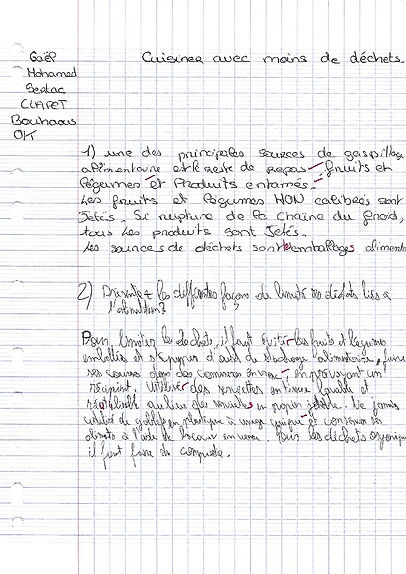 Gaël
Cuisiner avec moins de déchets.
Mohamed
Serlac
CLARET
Bouhaous
OK
1) une des principales sources de gaspillage
alimentaire est le reste de repas fruits et
légumes et Produits entamés.
Les fruits et légumes NON calibrés sont
Jetés. Si rupture de la chaîne du froid,
tous les produits sont Jetés.
les sources de déchets sont emballages alimenta
2) Présente les différentes façons de limiter les déchets liés à
l'alimentation?
Pour limiter les déchets, il faut éviter les fruits et légumes
emballés et s'équiper d'outil de stockage alimentaire, faire
ses courses dans des commerces en vrac en prévoyant un
récipient. Utiliser des serviettes en tissu lavable et
réutilisable au lieu des serviettes en papier jetable. Ne jamais
utiliser de gobelet en plastique à usage unique et conserver ses
aliments à l'aide de bocaux en verre. Pour les déchets organique
il faut faire du composte.